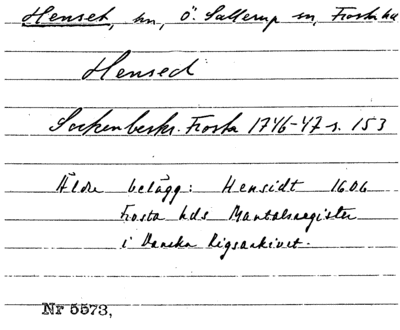 Henset, hn, Ö. Sallerup sn, Frosta hd
Hensed
Sockenbeskr. Frosta 1746-47 s. 153
Äldre belägg: Hensidt 1606
Frosta hds Mantalsregister
i Danska Rigsarkivet.
Nr 5573,